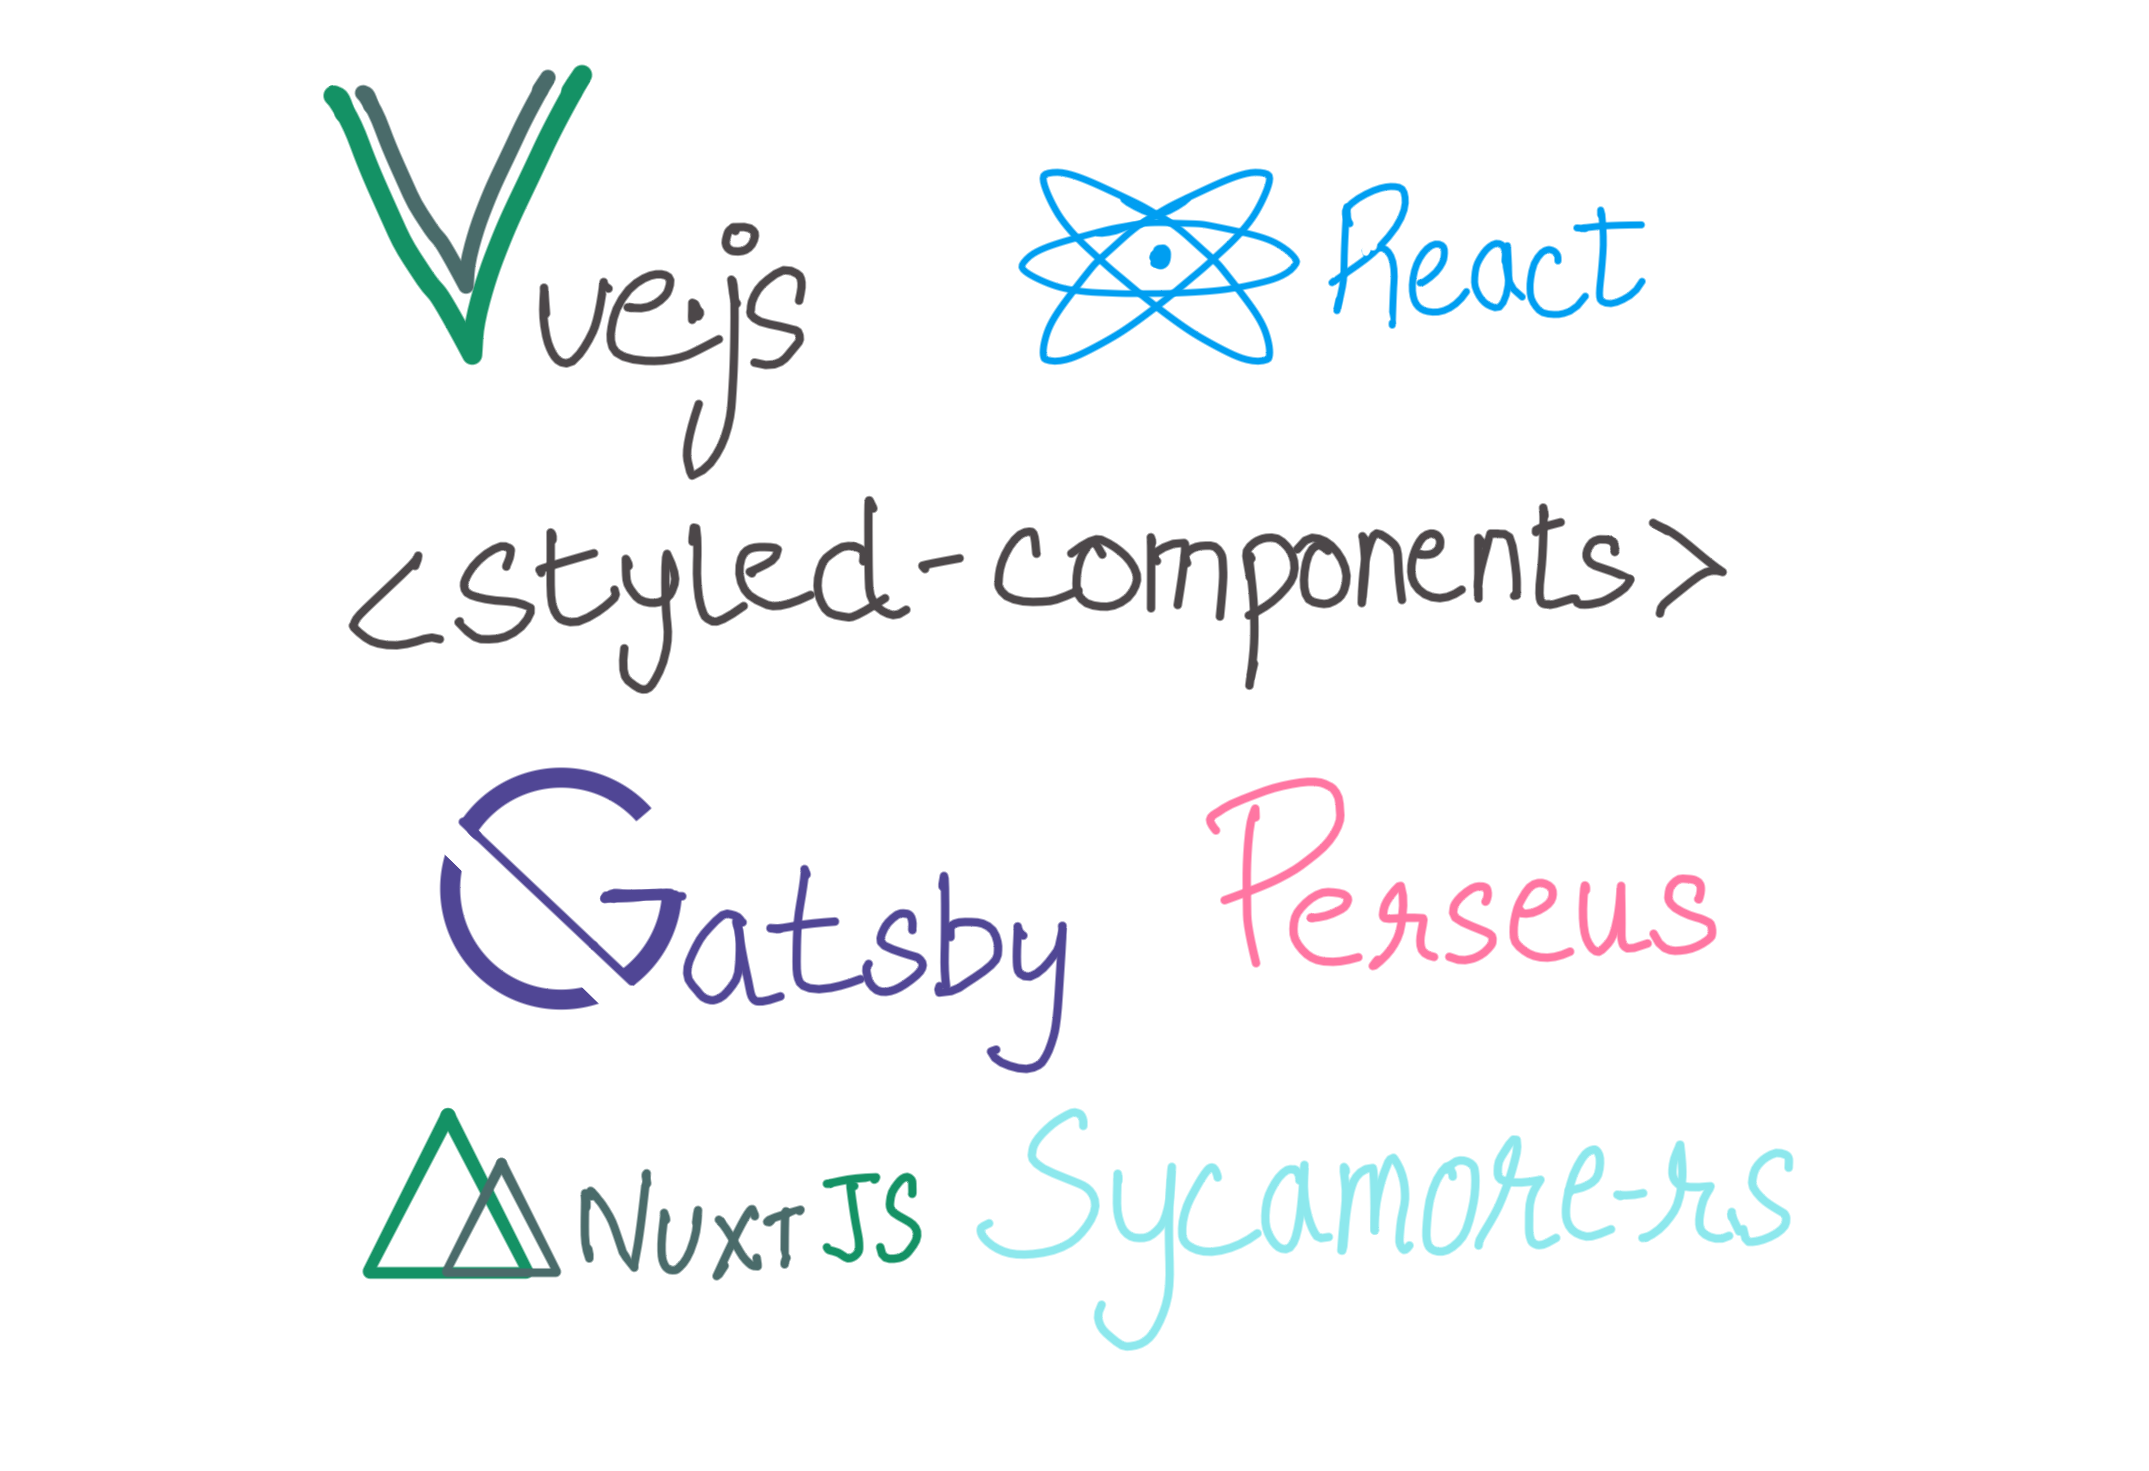 Vue.js React
<styled-components>
Gatsby Perseus
NUXTJS Sycamore-rs